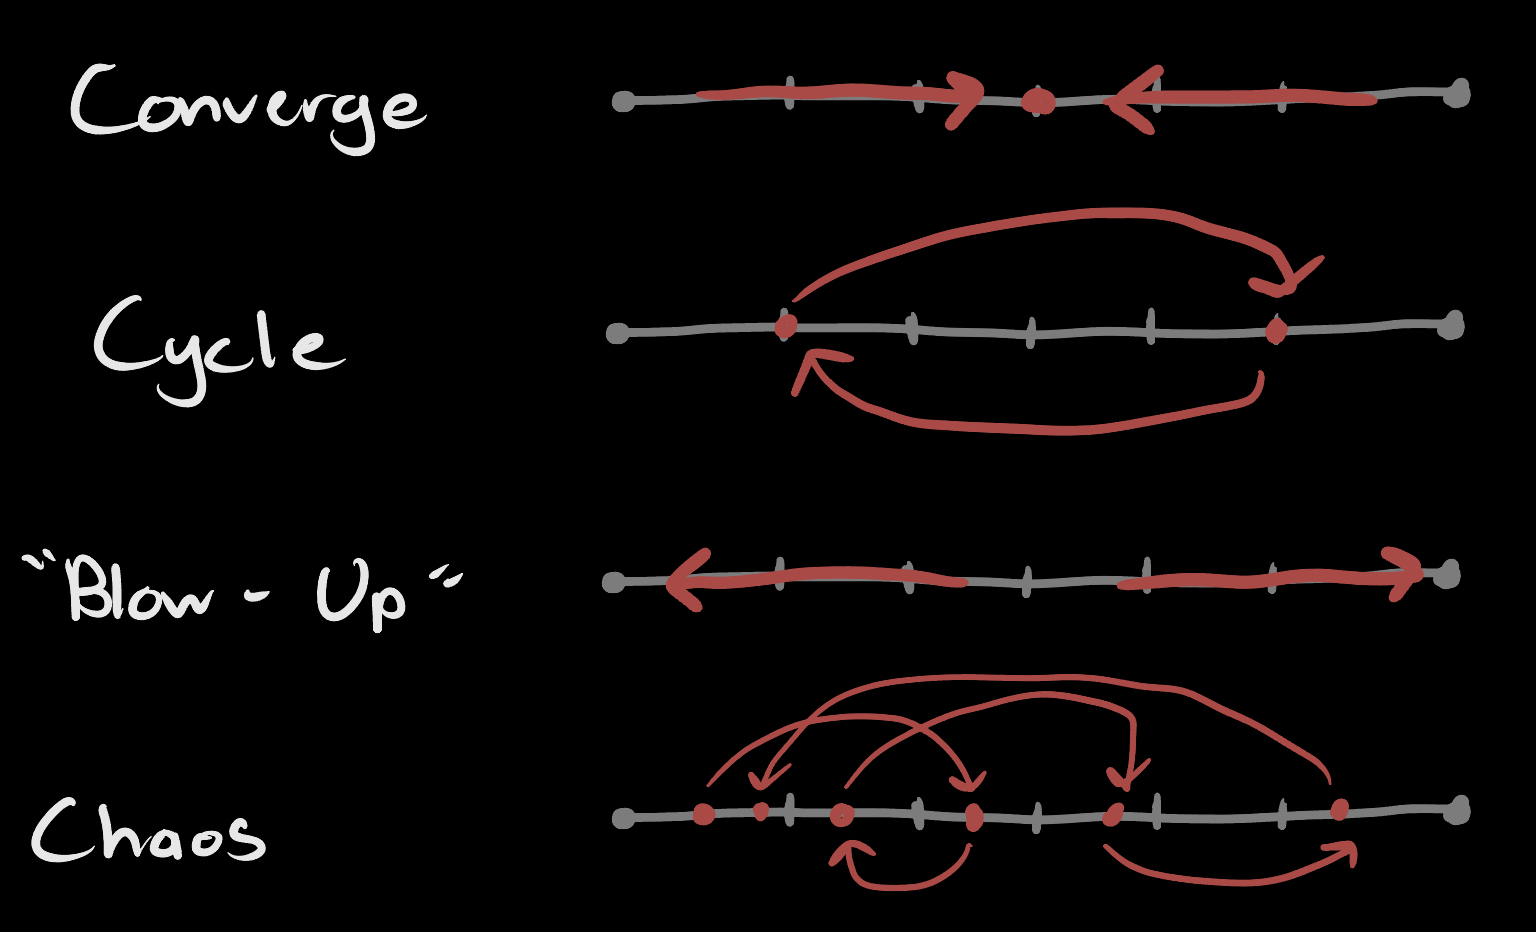 Converge
Cycle
"Blow-Up"
Chaos